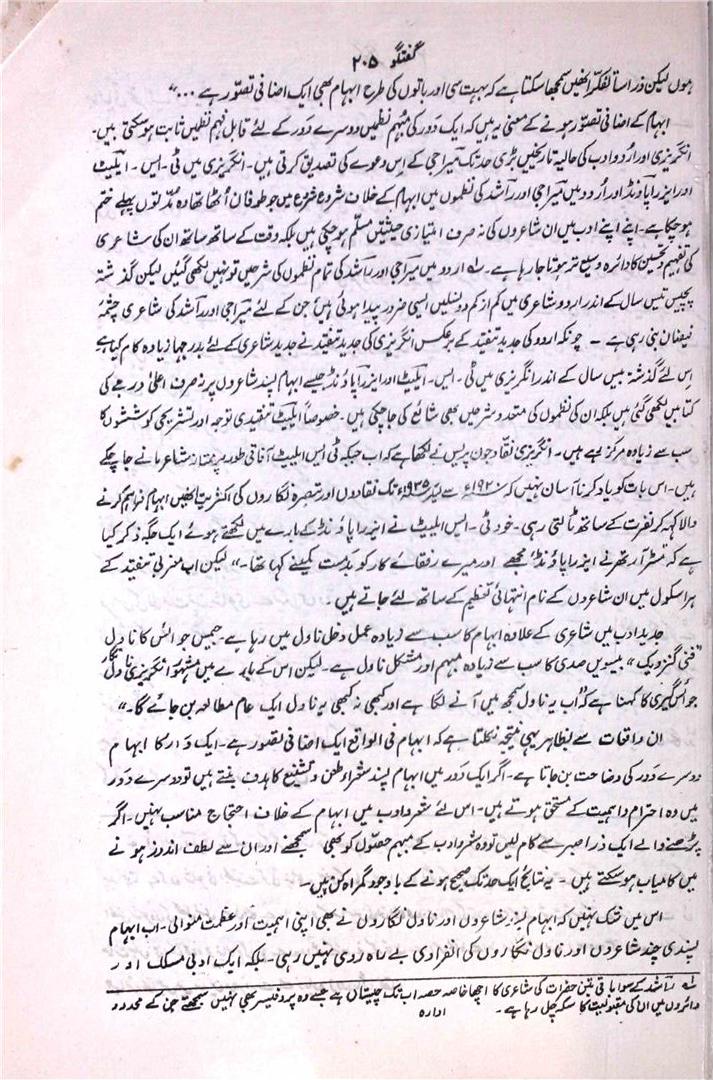 گفتگو ۲۰۵
ہوں لیکن ذرا سا تفکّر انھیں سمجھا سکتا ہے کہ بہت سی اور باتوں کی طرح ابہام بھی ایک اضافی تصوّر ہے ...“
ابہام کے اضافی تصوّر ہونے کے معنی یہ ہیں کہ ایک دَور کی مُبہم نظمیں دوسرے دَور کے لئے قابلِ فہم نظمیں ثابت ہو سکتی ہیں۔
انگریزی اور اُردو ادب کی حالیہ تاریخیں بڑی حد تک میراجی کے اِس دعوے کی تصدیق کرتی ہیں۔ انگریزی میں ٹی۔ایس۔ ایلیٹ
اور ایزرا پاؤنڈ اور اُردو میں میراجی اور راشد کی نظموں میں ابہام کے خلاف شروع شروع میں جو طوفان اُٹھا تھا وہ مدّتوں پہلے ختم
ہو چکا ہے۔ اپنے اپنے ادب میں ان شاعروں کی نہ صرف امتیازی حیثیتیں مسلّم ہو چکی ہیں بلکہ وقت کے ساتھ ساتھ ان کی شاعری
کی تفہیم و تحسین کا دائرہ وسیع تر ہوتا جا رہا ہے۔ ؎ اردو میں میراجی اور راشد کی تمام نظموں کی شرحیں تو نہیں لکھی گئیں لیکن گذشتہ
پچیس تیس سال کے اندر اردو شاعری میں کم از کم دو نسلیں ایسی ضرور پیدا ہوئی ہیں جن کے لئے میراجی اور راشد کی شاعری چشمۂ
فیضان بنی رہی ہے۔ چونکہ اردو کی جدید تنقید کے برعکس انگریزی کی جدید تنقید نے جدید شاعری کے لئے بدرجہا زیادہ کام کیا ہے
اِس لئے گذشتہ بیس سال کے اندر انگریزی میں ٹی۔ایس۔ایلیٹ اور ایزرا پاؤنڈ جیسے ابہام پسند شاعروں پر نہ صرف اعلیٰ درجے کی
کتابیں لکھی گئی ہیں بلکہ ان کی نظموں کی متعدد شرحیں بھی شائع کی جا چکی ہیں۔ خصوصاً ایلیٹ تنقیدی توجہ اور تشریحی کوششوں کا
سب سے زیادہ مرکز رہے ہیں۔ انگریزی نقاد جون پریس نے لکھا ہے کہ اب جبکہ ٹی ایس ایلیٹ آفاقی طور پر ممتاز شاعر مانے جا چکے
ہیں۔ اس بات کو یاد کرنا آسان نہیں کہ ۱۹۲۰ء سے لیکر ۱۹۳۵ء تک نقادوں اور تبصرہ نگاروں کی اکثریت انھیں ابہام فراہم کرنے
والا کہہ کر نفرت کے ساتھ ٹالتی رہی۔ خود ٹی۔ ایس ایلیٹ نے ایزرا پاؤنڈ کے بارے میں لکھتے ہوئے ایک جگہ ذکر کیا
ہے کہ مسٹر آرتھر نے ایزرا پاؤنڈ، مجھے اور میرے رفقائے کار کو بدمست کیلئے کہا تھا۔“ لیکن اب مغربی تنقید کے
ہر اسکول میں ان شاعروں کے نام انتہائی تعظیم کے ساتھ لئے جاتے ہیں۔
جدید ادب میں شاعری کے علاوہ ابہام کا سب سے زیادہ عمل دخل ناول میں رہا ہے۔ جیمس جوائس کا ناول
”فنی گنز ویک“ بیسویں صدی کا سب سے زیادہ مبہم اور مشکل ناول ہے۔ لیکن اس کے بارے میں مشہور انگریزی ناول نگار
جوائس گیری کا کہنا ہے کہ ”اب یہ ناول سمجھ میں آنے لگا ہے اور کبھی نہ کبھی یہ ناول ایک عام مطالعہ بن جائے گا۔“
ان واقعات سے بظاہر یہی نتیجہ نکلتا ہے کہ ابہام فی الواقع ایک اضافی تصور ہے۔ ایک دَور کا ابہام
دوسرے دَور کی وضاحت بن جاتا ہے۔ اگر ایک دَور میں ابہام پسند شعراء طعن و تشنیع کا ہدف بنتے ہیں تو دوسرے دَور
میں وہ احترام و اہمیت کے مستحق ہوتے ہیں۔ اس لئے شعر و ادب میں ابہام کے خلاف احتجاج مناسب نہیں۔ اگر
پڑھنے والے ایک ذرا صبر سے کام لیں تو وہ شعر و ادب کے مبہم حصّوں کو بھی سمجھنے اور ان سے لطف اندوز ہونے
میں کامیاب ہو سکتے ہیں۔ یہ نتائج ایک حد تک صحیح ہونے کے باوجود گمراہ کن ہیں۔
اس میں شک نہیں کہ ابہام پسند شاعروں اور ناول نگاروں نے بھی اپنی اہمیت اور عظمت منوالی۔ اب ابہام
پسندی چند شاعروں اور ناول نگاروں کی انفرادی بے راہ روی نہیں رہی۔ بلکہ ایک ادبی مسلک اور
؎ راشد کے سوا باقی تین حضرات کی شاعری کا اچھا خاصہ حصہ اب تک چیستاں ہے جسے وہ پروفیسر بھی نہیں سمجھتے جن کے محدود
دائروں میں ان کی مقبولیت کا سکہ چل رہا ہے۔ ادارہ